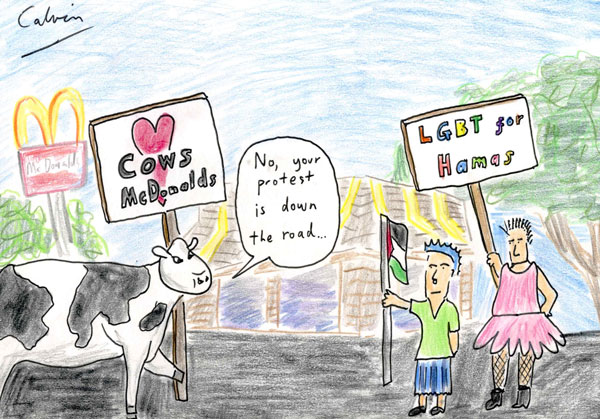 Calvin
McDonald
COWS
McDonalds
No, your
protest
is down
the road...
LGBT for
Hamas